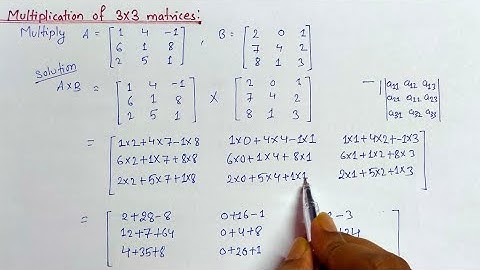 Multiplication of 3x3 matrices:
Multiply A = [1 4 -1], B = [2 0 1]
[6 1 8] [7 4 2]
[2 5 1] [8 1 3]
Solution
A×B = [1 4 -1] × [2 0 1]
[6 1 8] [7 4 2]
[2 5 1] [8 1 3]
— |a11 a12 a13|
|a21 a22 a23|
= [1×2+4×7-1×8 1×0+4×4-1×1 1×1+4×2+-1×3]
[6×2+1×7+8×8 6×0+1×4+8×1 6×1+1×2+8×3]
[2×2+5×7+1×8 2×0+5×4+1×1 2×1+5×2+1×3]
= [2+28-8 0+16-1 -3]
[12+7+64 0+4+8 +24]
[4+35+8 0+20+1